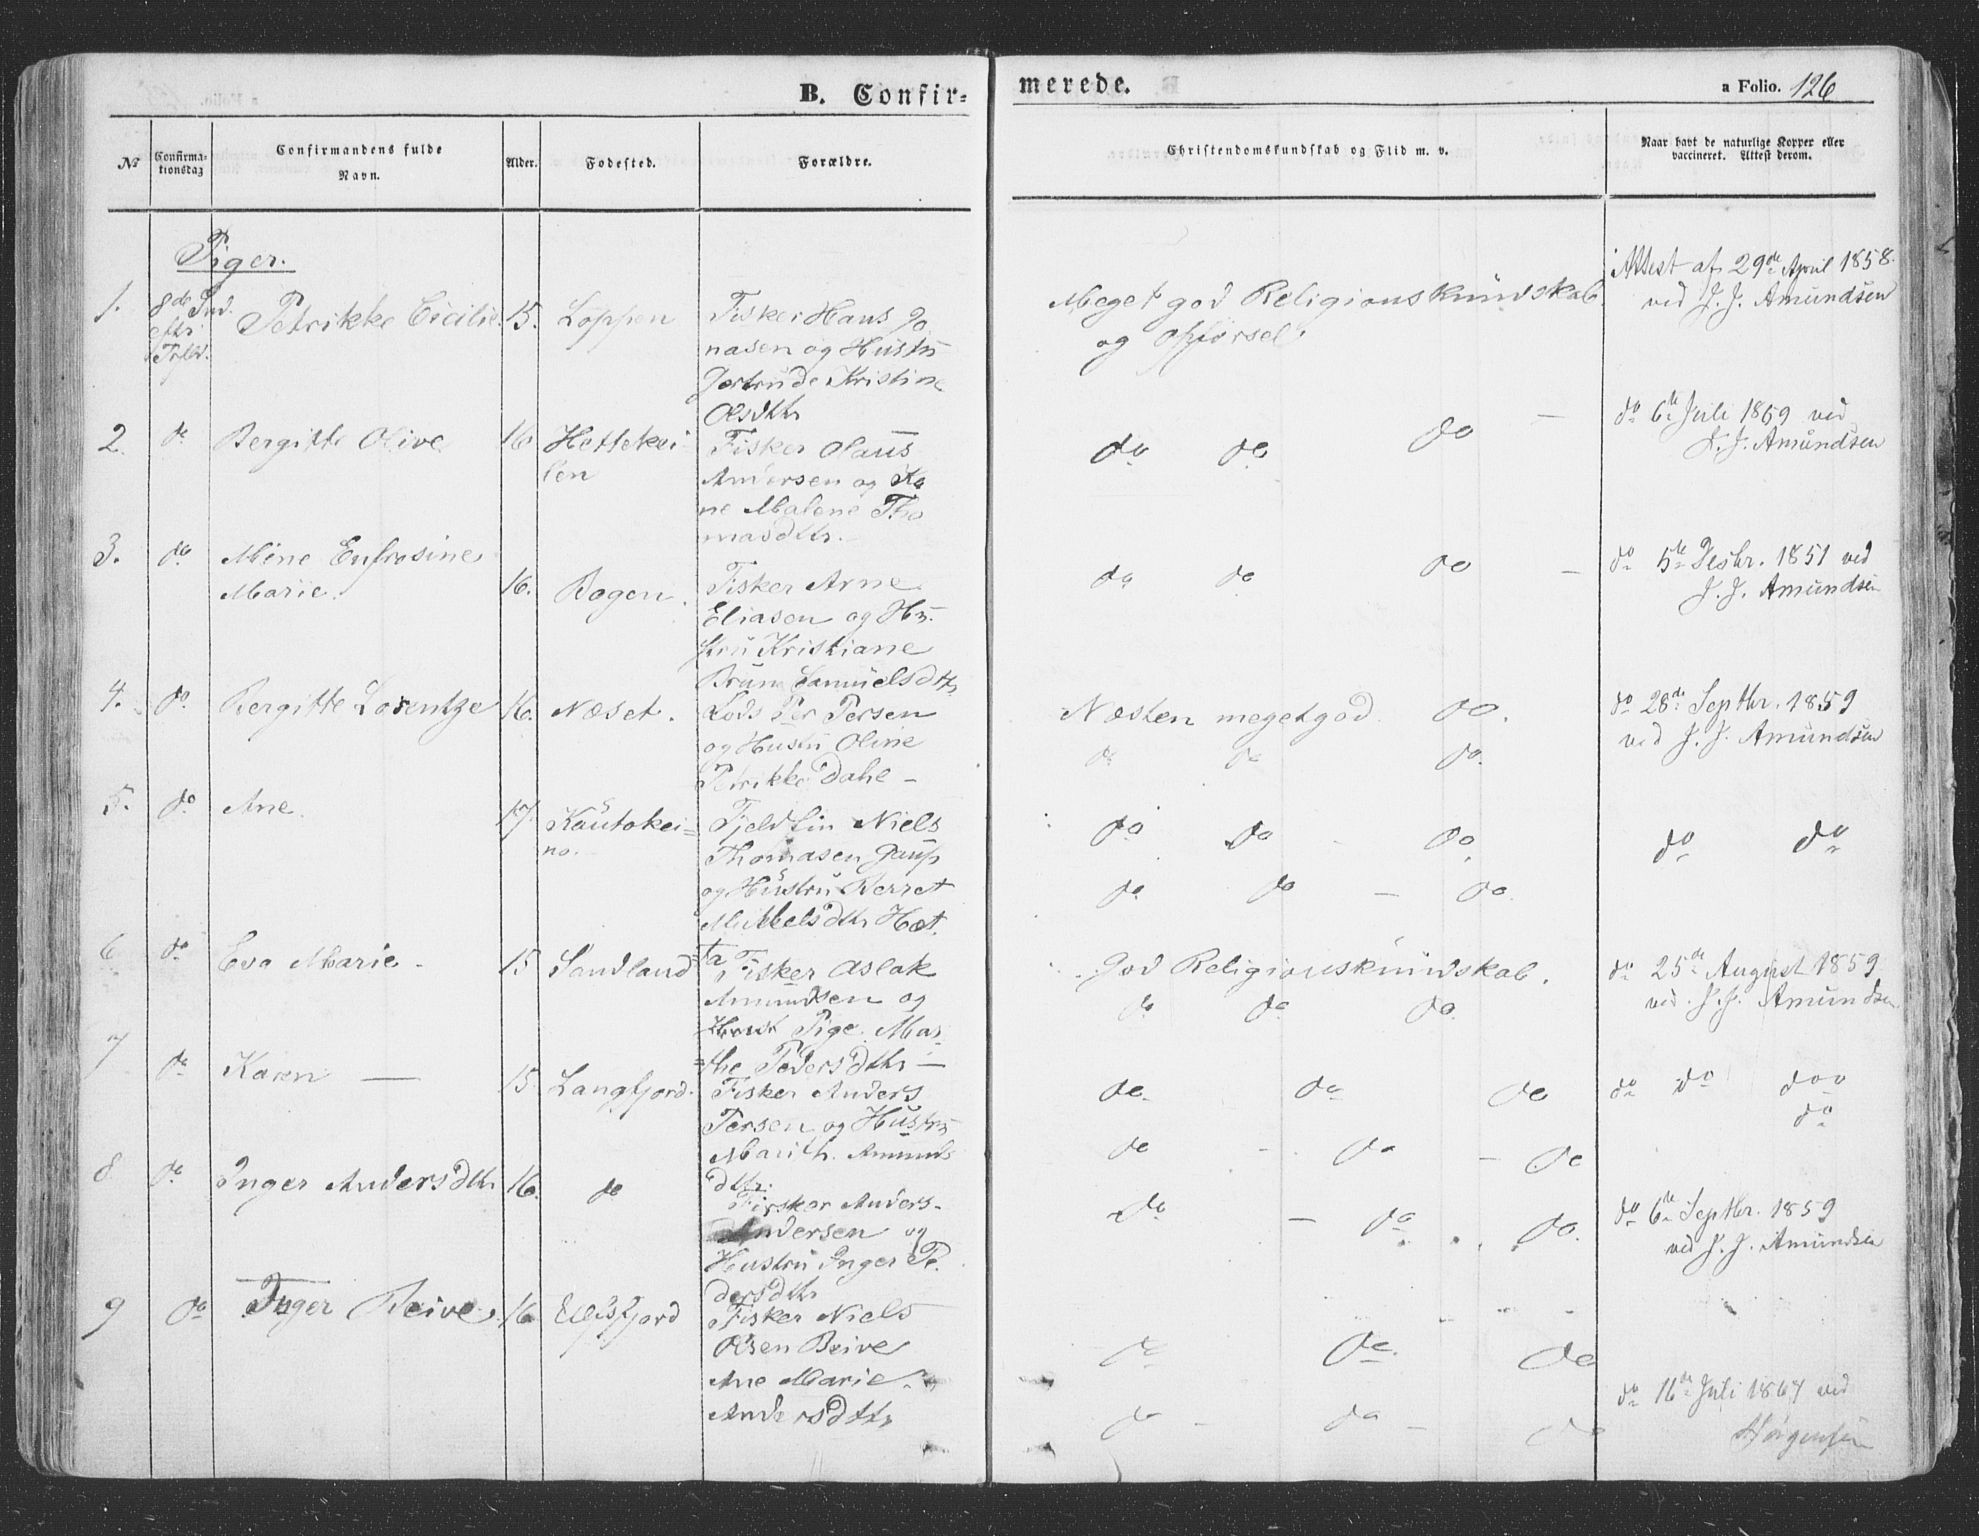 B. Confir-
merede.
a Folio. 126
No
Confirma-
tionsdag
Confirmandens fulde
Navn.
Alder.
Fodested.
Forældre.
Christendomskundskab og Flid m. v.
Naar havt de naturlige Kopper eller
vaccineret. Attest derom.
Piger.
1. 8de Snd.
Petrikke Cicilie 15. Loppen
Fisker Hans Jo
nasen og Hustru
Gertrude Kristine
Olsdtr
Meget god Religionskundskab
og Opførsel
Attest af 29de April 1858
ved J. J. Amundsen
2. do Bergitte Olive 16 Hettekei
len
Fisker Olaus
Andersen og Ko
ne Malene Tho
masdtr.
do do do
do 6te Juli 1859 ved
J. J. Amundsen
3. do Mine Eufrosine
Marie. 16. Bogen.
Fisker Arne
Eliasen og Hu-
stru Kristiane
Bruun Samuelsdtr
do do do
do 5te Desbr. 1851 ved
J. J. Amundsen
4. do Bergitte Lorentze 16. Næset.
Lods Per Persen
og Hustru Oline
Petrikke Dahl
Næsten megetgod do.
do do do.
do 28de Septbr. 1859
ved J. J. Amundsen
5. do Ane. 17. Kautokei=
no.
Fjeldfin Niels
Thomasen Gaup
og Hustru Berret
Mikkelsdtr Hæt
ta
do do do
do do do
do do
6 do Eva Marie 15 Sandland
Fisker Aslak
Amundsen og
Pige Mar
the Pedersdtr
God Religionskundskab.
do do do
do 25de August 1859
ved J. J. Amundsen
7 do Karen 15 Langfjord.
Fisker Anders
Persen og Hustru
Marith Amunds
dtr.
do do do
do do do
do do do
do
8 do Inger Andersdtr 16. do
Fisker Anders
Andersen og
Hustru Inger Pe
dersdtr
do do do.
do 6te Septbr. 1859
ved J. J. Amundsen
9 do Inger Beive 16 Elfsfjord
Fisker Niels
Olsen Beive
Ane Marie
Andersdtr
do do do
do do do
do 16de Juli 1867 ved
Jørgensen